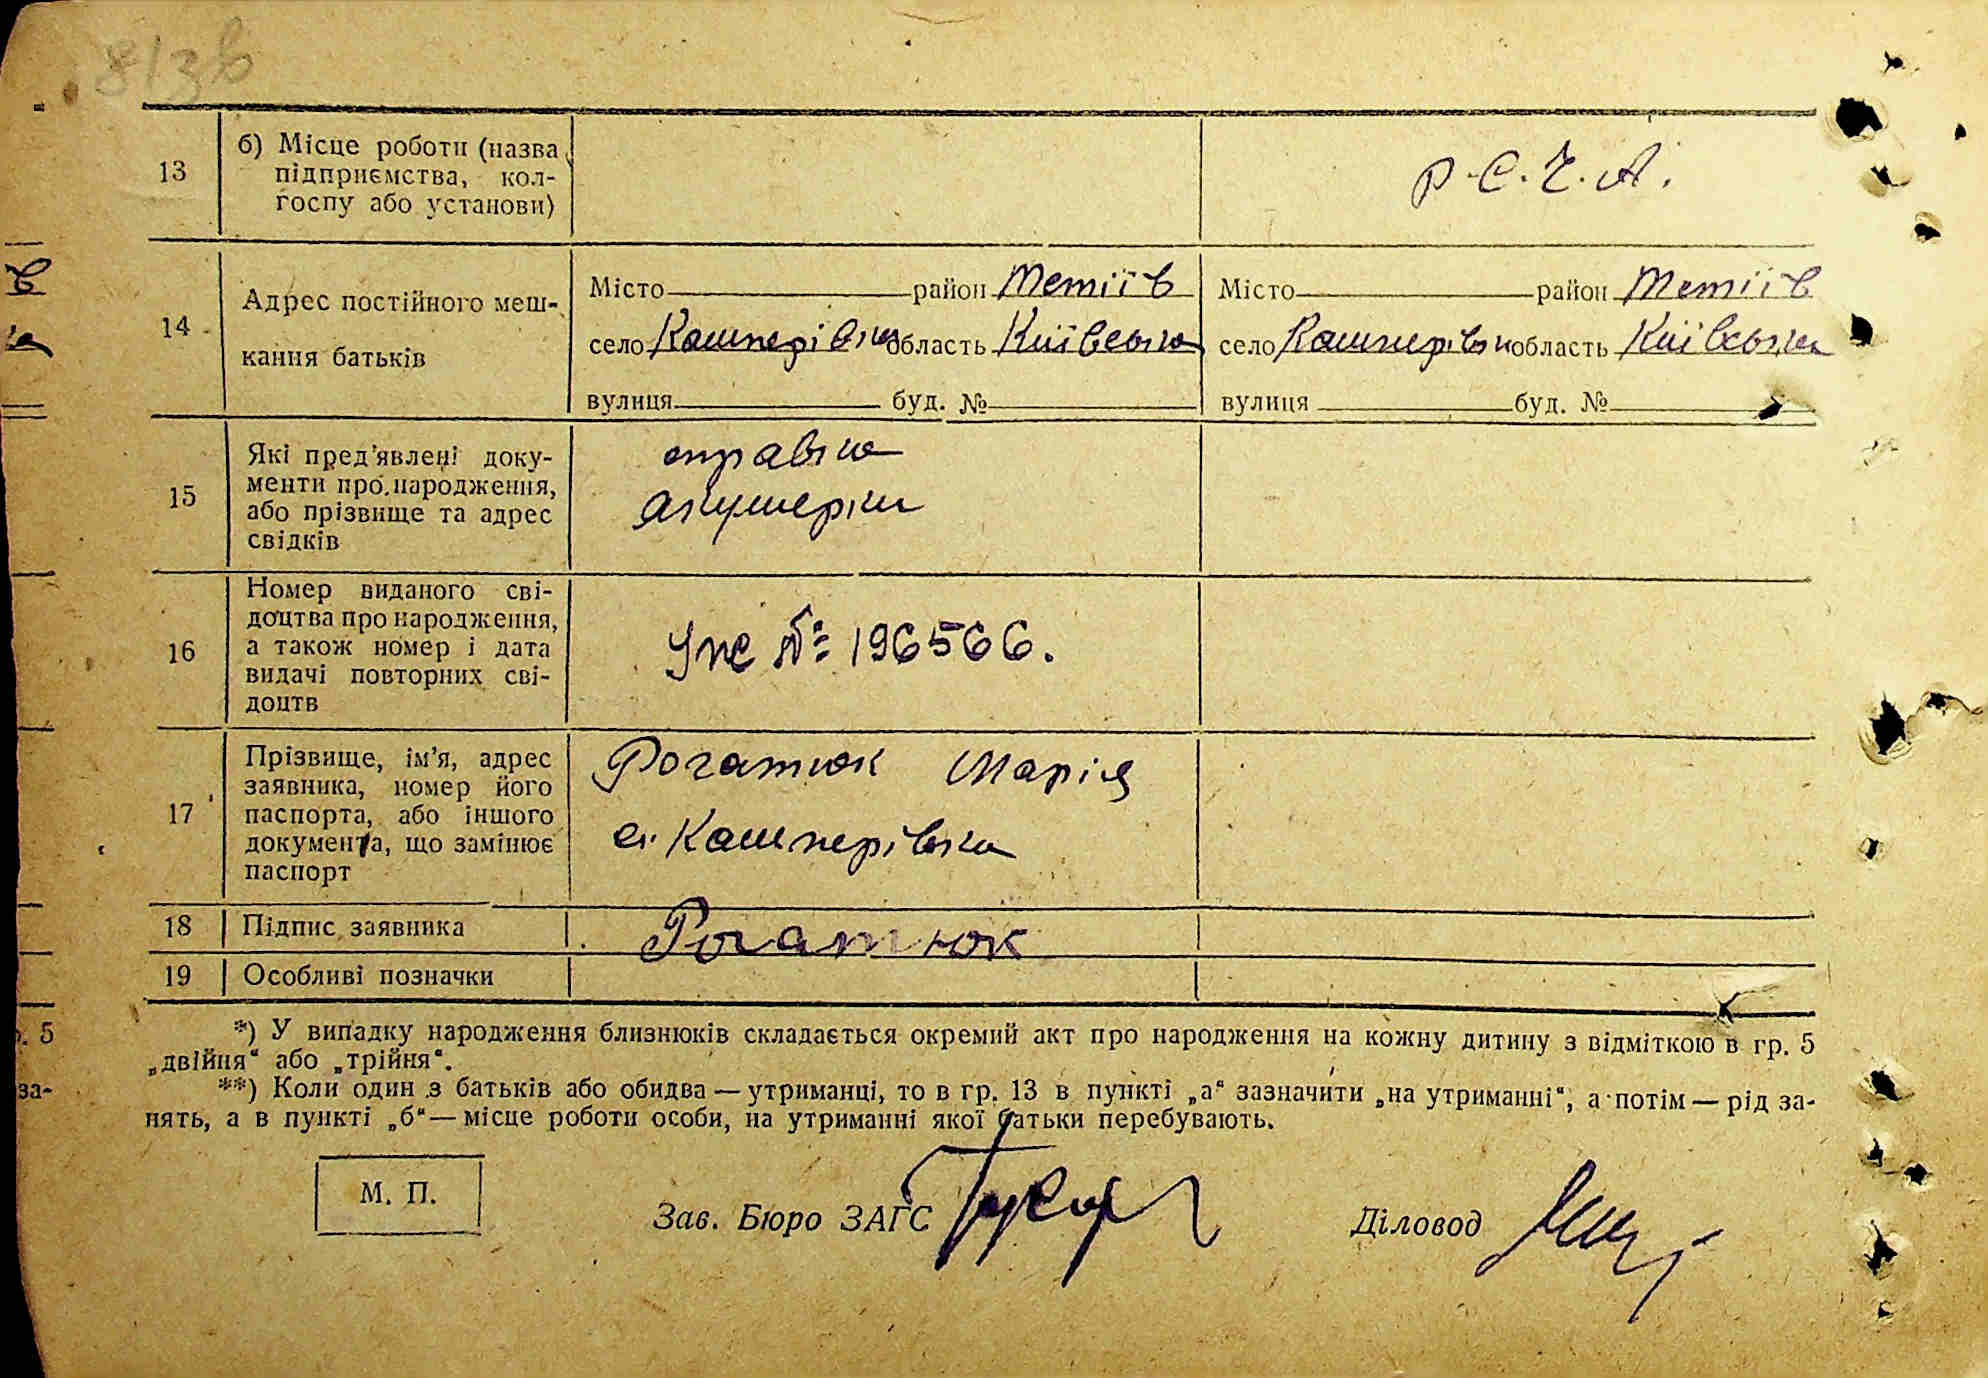 8/зв
13
б) Місце роботи (назва
підприємства, кол-
госпу або установи)
Р.С.Ч.А.
14
Адрес постійного меш-
кання батьків
Місто район Тетіїв
село Кашперівка область Київська
вулиця буд. №
Місто район Тетіїв
село Кашперівка область Київська
вулиця буд. №
15
Які пред'явлені доку-
менти про народження,
або прізвище та адрес
свідків
справка
акушерки
16
Номер виданого сві-
доцтва про народження,
а також номер і дата
видачі повторних сві-
доцтв
№ 196566.
17
Прізвище, ім'я, адрес
заявника, номер його
паспорта, або іншого
документа, що замінює
паспорт
Рогатюк Марія
с. Кашперівка
18
Підпис заявника
Рогатюк
19
Особливі позначки
*) У випадку народження близнюків складається окремий акт про народження на кожну дитину з відміткою в гр. 5
„двійня“ або „трійня“.
**) Коли один з батьків або обидва — утриманці, то в гр. 13 в пункті „а“ зазначити „на утриманні“, а потім — рід за-
нять, а в пункті „б“ — місце роботи особи, на утриманні якої батьки перебувають.
М. П.
Зав. Бюро ЗАГС
Діловод
. 5
за-